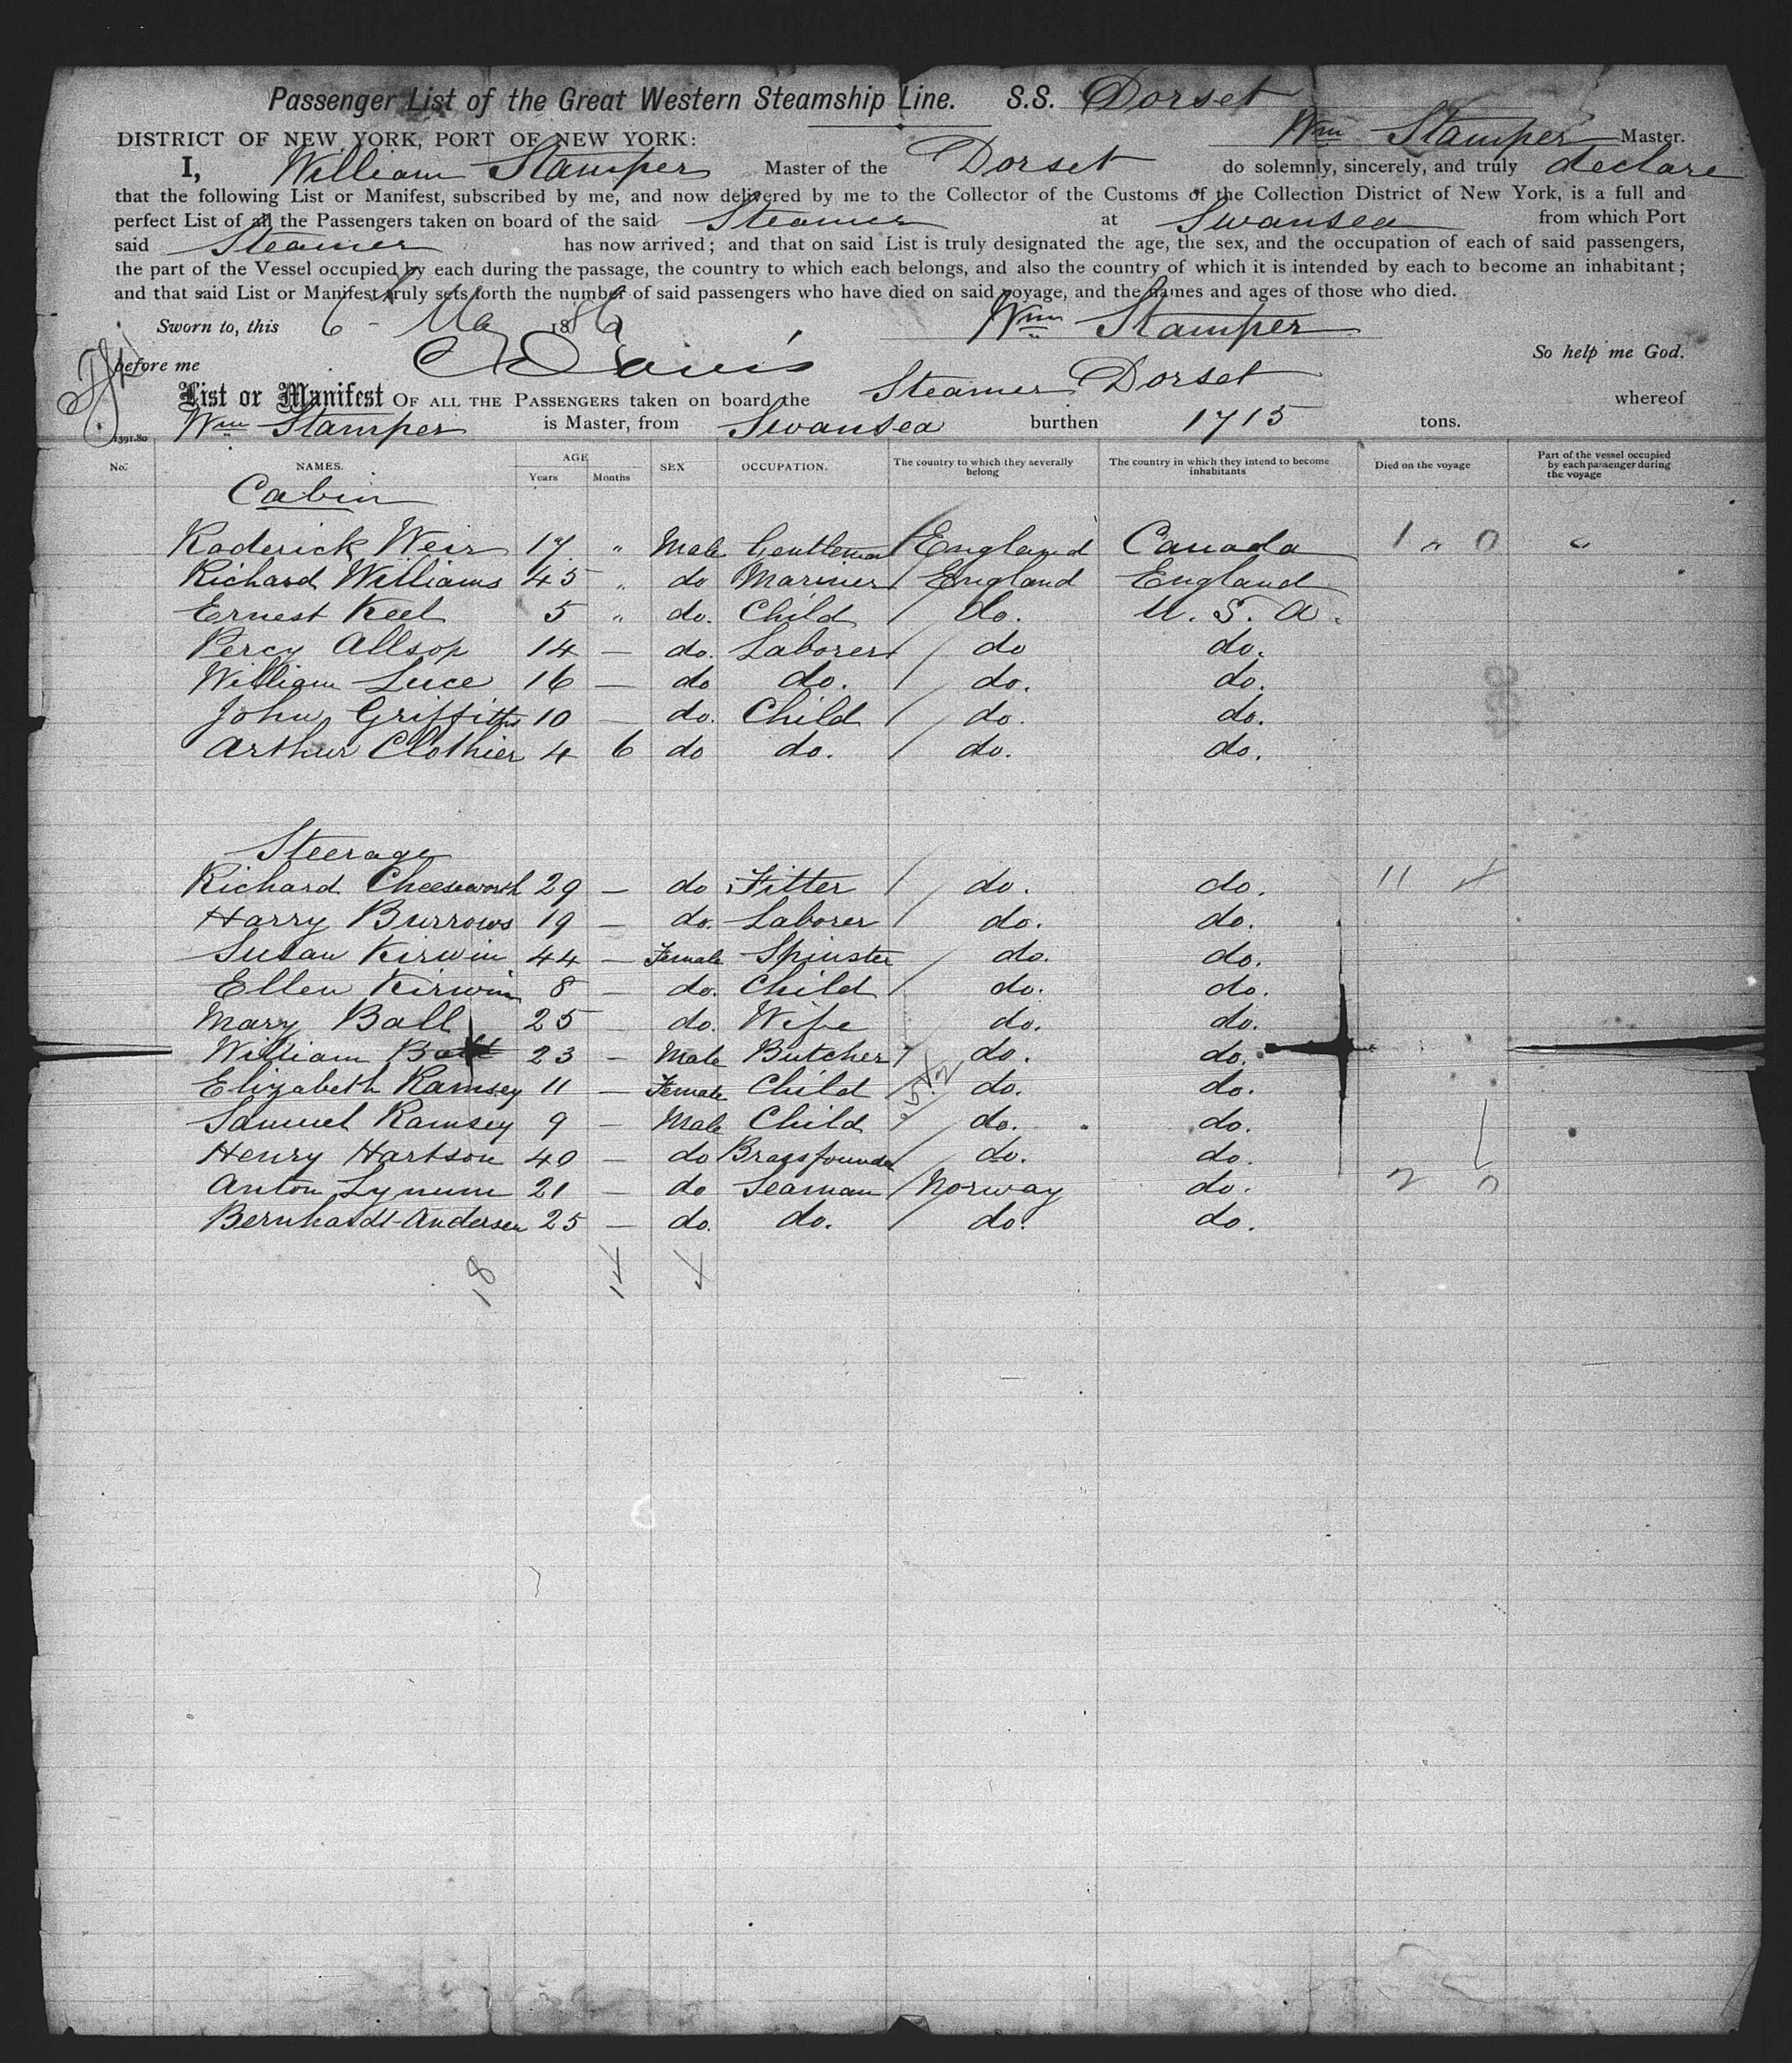 Passenger List of the Great Western Steamship Line. S.S. Dorset
DISTRICT OF NEW YORK, PORT OF NEW YORK: Wm Stamper Master.
I, William Stamper Master of the Dorset do solemnly, sincerely, and truly declare
that the following List or Manifest, subscribed by me, and now delivered by me to the Collector of the Customs of the Collection District of New York, is a full and
perfect List of all the Passengers taken on board of the said Steamer at Swansea from which Port
said Steamer has now arrived; and that on said List is truly designated the age, the sex, and the occupation of each of said passengers,
the part of the Vessel occupied by each during the passage, the country to which each belongs, and also the country of which it is intended by each to become an inhabitant;
and that said List or Manifest truly sets forth the number of said passengers who have died on said voyage, and the names and ages of those who died.
Sworn to, this 6 May 1886 Wm Stamper
before me Davis So help me God.
List or Manifest OF ALL THE PASSENGERS taken on board the Steamer Dorset whereof
Wm Stamper is Master, from Swansea burthen 1715 tons.
1391.80
No. NAMES. AGE Years Months SEX OCCUPATION. The country to which they severally belong The country in which they intend to become inhabitants Died on the voyage Part of the vessel occupied by each passenger during the voyage
Cabin
Roderick Weir 17 " Male Gentleman / England Canada 1 " 0 "
Richard Williams 45 " do Mariner / England England
Ernest Keel 5 " do. Child / do. U. S. A.
Percy Allsop 14 — do. Laborer / do do.
William Luce 16 — do do. / do. do.
John Griffiths 10 — do. Child / do. do.
Arthur Clothier 4 6 do do. / do. do.
Steerage
Richard Cheeseworth 29 — do Fitter / do. do. 11 4
Harry Burrows 19 — do. Laborer / do. do.
Susan Kirwin 44 — Female Spinster / do. do.
Ellen Kirwin 8 — do. Child / do. do.
Mary Ball 25 do. Wife do. do.
William Ball 23 — Male Butcher / do. do.
Elizabeth Ramsey 11 — Female Child / do. do.
Samuel Ramsey 9 — Male Child / do. do.
Henry Hartson 40 — do Brassfounder do. do.
Anton Lynum 21 — do Seaman / Norway do. 2 0
Bernhardt Andersen 25 — do. do. / do. do.
18 14 4